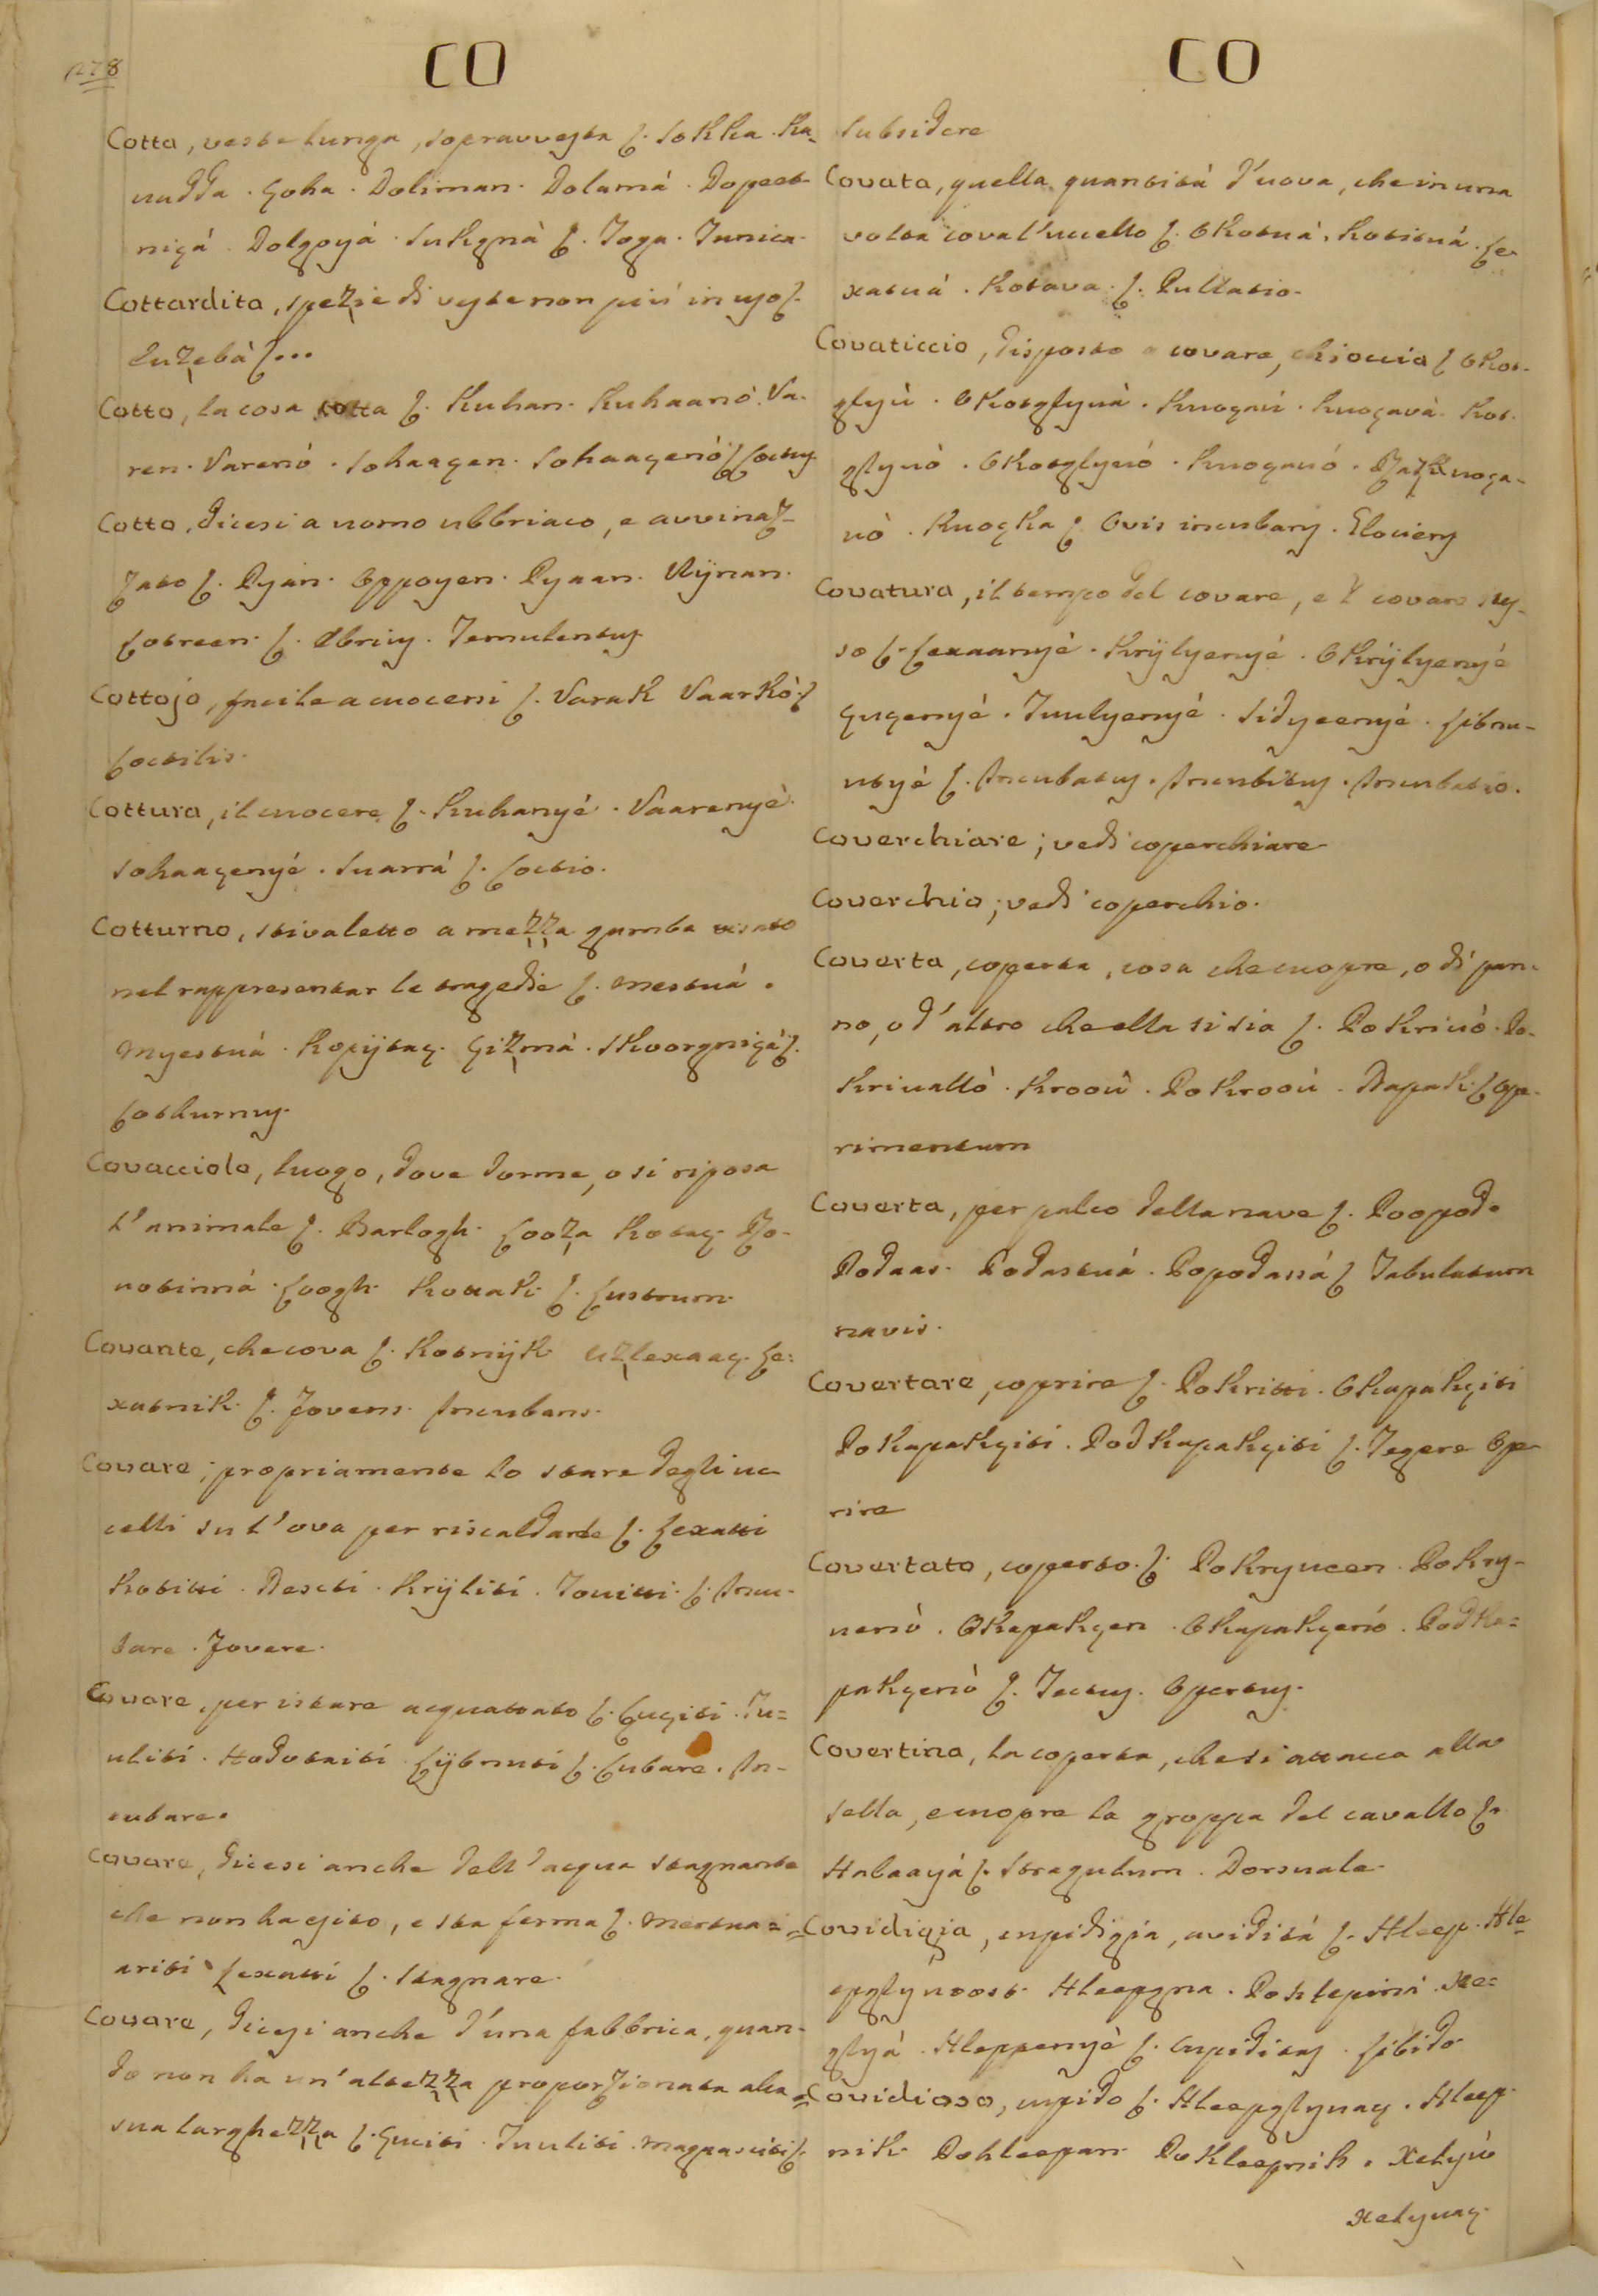 1278
CO
Cotta, veste lunga, sopravvesta ſ. Sokħa. Ha-
uaδδa. Çoha. Doliman. Dolamá. Dopeet-
niçá. Dolgoyá. Sukgnà ſ. Toga. Tunica.
Cottardita, spezie di veste non più in uso ſ.
Luzebà ſ...
Cotto, la cosa cotta ſ. Kuhan. Kuhaanò. Va-
ren. Varenò. Sohaaçen. Sohaaçenò ſ Coctus
Cotto, dicesi a uomo ubbriaco, e avvinaz-
zato ſ. Pyán. Oppoyen. Pyaan. Vijnan.
Cotreen. ſ. Ebrius. Temulentus
Cottojo, facile a cuocersi ſ. Varak Vaarkò. ſ
Coctilis.
Cottura, il cuocere ſ. Kuhanyé. Vaarenyé.
Sohaaçenyé. Suarrá ſ. Coctio.
Cotturno, stivaletto a mezza gamba usato
nel rappresentar le tragedie ſ. Mestuá.
Myestuá. Kopijtaç. Çizmá. Skoorgniçá ſ.
Cothurnus.
Covacciolo, luogo, dove dorme, o si riposa
l'animale ſ. Barlogh. Looza Kotaç. Po-
uotinná. Loogh. Kottak. ſ. Lustrum.
Covante, che cova ſ. Kotnijk Uzlexaaç. Le-
xatnik. ſ. Fovens. Incubans.
Covare, propriamente lo stare degli uc
celli su l'ova per riscaldarle ſ. Lexatti
Kotitti. Desctí. Krijlití. Touitti. ſ. Incu-
bare. Fovere.
Covare, per istare acquattato ſ. Çuçiti. Tu-
uliti. Hodotaiti Çijbnuti ſ. Cubare. In-
cubare.
Covare, dicesi anche dell'acqua stagnante
che non ha esito, e sta ferma ſ. Mertua-
ariti Lexatti ſ. Stagnare.
Covare, dicesi anche d'una fabbrica, quan-
do non ha un'altezza proporzionata alla
sua larghezza ſ. Çuciti. Tuuliti. Magnasciti ſ.
CO
Subsidere
Covata, quella quantità d'uova, che in una
volta cova l'uccello ſ. Okotuá. Kotituá. Le-
xatuá. Kotava. ſ. Pullatio.
Covaticcio, disposto a covare, chioccia ſ Okot-
glyú. Okotglyuá. Kuoçaú. Kuoçavà. Kot-
glyuò. Okotglyuó. Kuoçauó. Razkuoça-
uò. Kuoçka ſ. Ovis incubans. Glociens
Covatura, il tempo del covare, e'l covare stes-
so ſ. Lexaanyé. Krijlyenyé. Okrijlyenyé
Çuçenyé. Tuulyenyé. Sidyeenyé. Sibnu-
utyé ſ. Incubatus. Incubitus. Incubatio.
Coverchiare; vedi coperchiare
Coverchio; vedi coperchio.
Coverta, coperta, cosa che cuopre, o di pan-
no, o d'altro che ella si sia ſ. Pokriuò. Po-
kriuallò. Kroou. Pokroou. Zapak. ſ. Ope-
rimentum
Coverta, per palco della nave ſ. Poopod.
Podaas. Podastuá. Popodassá ſ Tabulatum
navis.
Covertare, coprire ſ. Pokritti. Okapakçiti
Pokapakçiti. Podkapakçiti ſ. Tegere Ope
rire
Covertato, coperto. ſ. Pokryueen. Pokry-
uenò. Okapakçen. Okapakçenò. Podka-
pakçenò ſ. Tectus. Opertus.
Covertina, la coperta, che si attacca alla
sella, e cuopre la groppa del cavallo ſ.
Halaayá ſ. Stragulum. Dorsuale.
Covidigia, cupidigia, avidità ſ. Hleep. Hle-
epglyuoost. Hleepgna. Pohlepinà. Xe-
glyá. Hleppenyé ſ. Cupiditas. Libido
Covidioso, cupido ſ. Hleepglyuaç. Hleep-
nik. Pohleepan. Pohleepnik. Xelyúo
Xelyuaç.